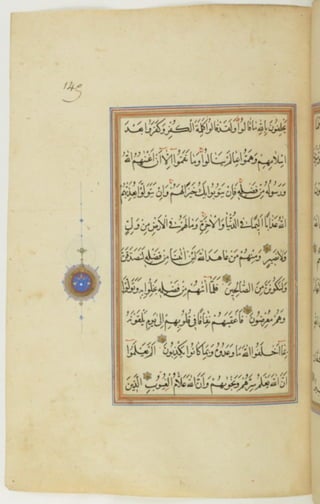 يَحْلِفُونَ بِاللهِ مَا قَالُوا وَلَقَدْ قَالُوا كَلِمَةَ الْكُفْرِ وَكَفَرُوا بَعْدَ
اِسْلَامِهِمْ وَهَمُّوا بِمَا لَمْ يَنَالُوا وَمَا نَقَمُوا اِلَّا اَنْ اَغْنٰهُمُ اللهُ
وَرَسُولُهُ مِنْ فَضْلِهِ فَاِنْ يَتُوبُوا يَكُ خَيْرًا لَهُمْ وَاِنْ يَتَوَلَّوْا يُعَذِّبْهُمُ
اللهُ عَذَابًا اَلِيمًا فِي الدُّنْيَا وَالْاٰخِرَةِ وَمَا لَهُمْ فِي الْاَرْضِ مِنْ وَلِيٍّ
وَلَا نَصِيرٍ وَمِنْهُمْ مَنْ عَاهَدَ اللهَ لَئِنْ اٰتٰنَا مِنْ فَضْلِهِ لَنَصَّدَّقَنَّ
وَلَنَكُونَنَّ مِنَ الصَّالِحِينَ فَلَمَّا اٰتٰهُمْ مِنْ فَضْلِهِ بَخِلُوا بِهِ وَتَوَلَّوْا
وَهُمْ مُعْرِضُونَ فَاَعْقَبَهُمْ نِفَاقًا فِي قُلُوبِهِمْ اِلٰى يَوْمِ يَلْقَوْنَهُ
بِمَا اَخْلَفُوا اللهَ مَا وَعَدُوهُ وَبِمَا كَانُوا يَكْذِبُونَ اَلَمْ يَعْلَمُوا
اَنَّ اللهَ يَعْلَمُ سِرَّهُمْ وَنَجْوٰيهُمْ وَاَنَّ اللهَ عَلَّامُ الْغُيُوبِ الَّذِينَ